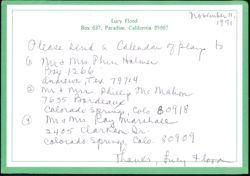 Lucy Flood
Box 637, Paradise, California 95967
November 11,
1991
Please send a Calendar of plays to
① Mr & Mrs Phin Holmer
Box 1266
Andrews, Tex 79714
② Mr & Mrs Philip Mc Mahon
7635 Bordeaux
Colorado Springs, Colo 80918
④ Mr & Mrs Ray Marshall
2405 Clarkson Dr.
Colorado Springs, Colo. 80909
Thanks, Lucy Flood